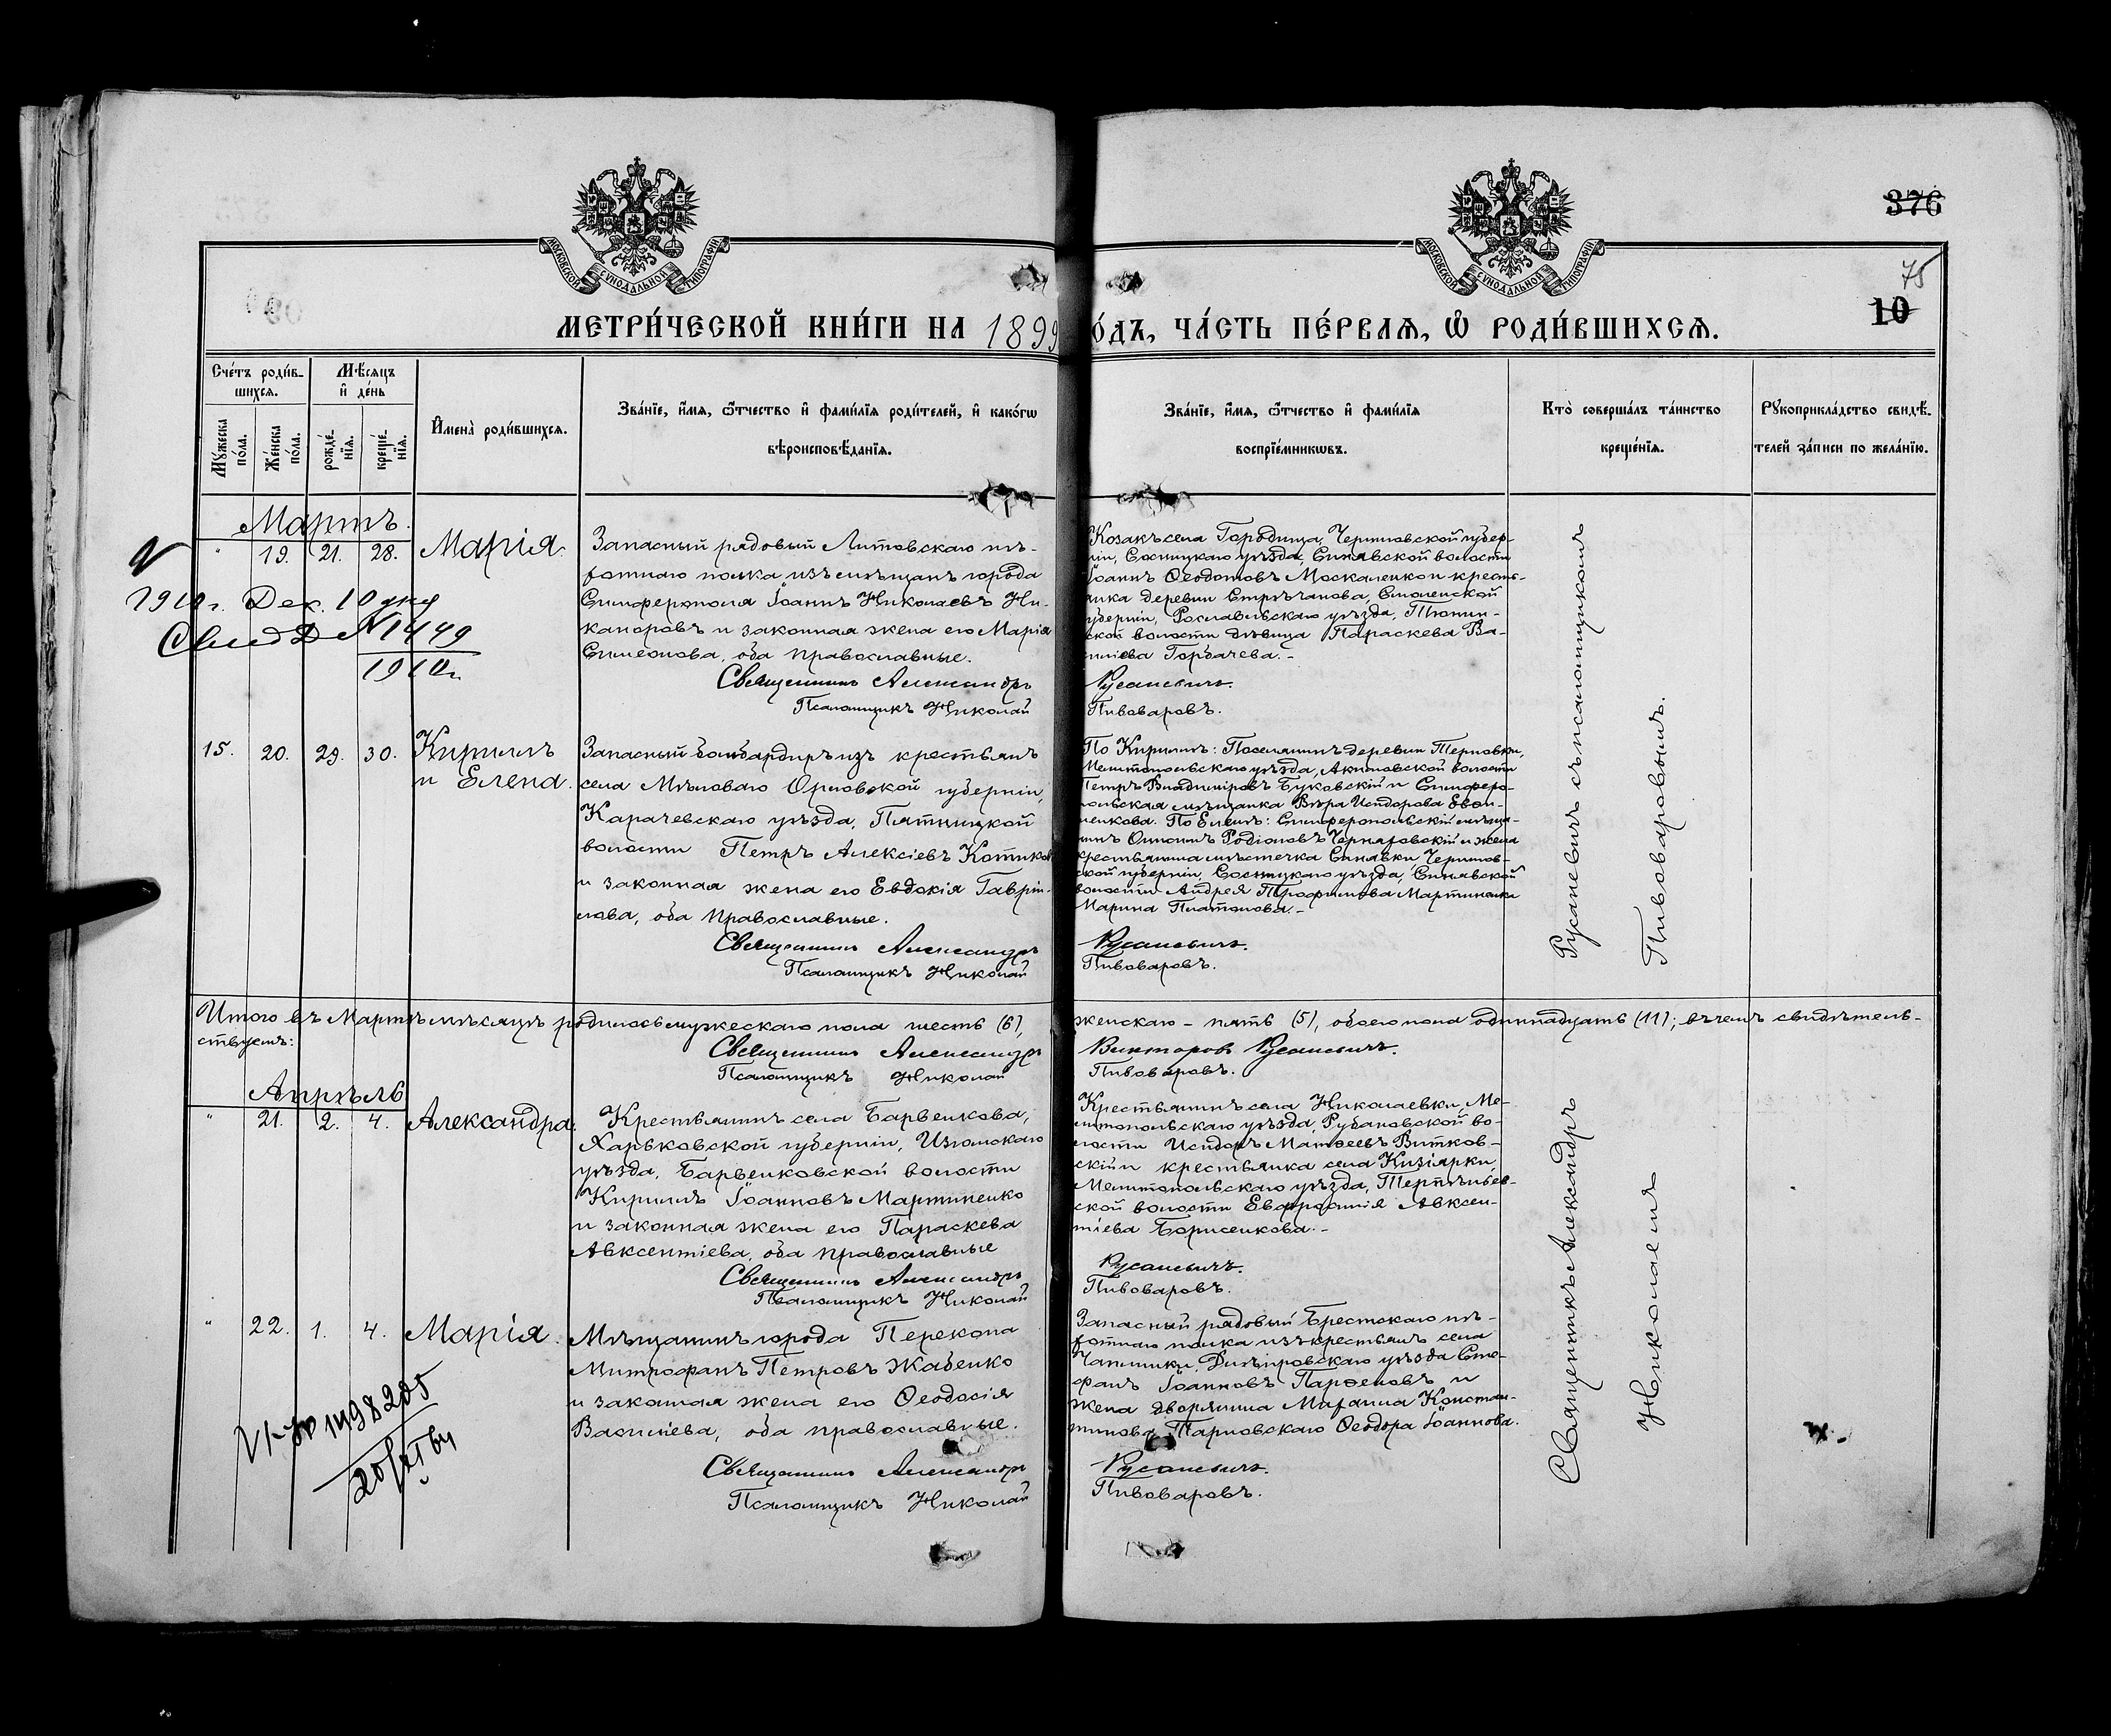 МОСКОВСКОЙ СѴНОДАЛЬНОЙ ТИПОГРАФІИ
МОСКОВСКОЙ СѴНОДАЛЬНОЙ ТИПОГРАФІИ
376
75
10
МЕТРИ́ЧЕСКОЙ КНИ́ГИ НА 1899
О́ДЪ, ЧА́СТЬ ПЕ́РВАѦ, Ѽ РОДИ́ВШИХСѦ.
Сче́тъ роди́в-
шихсѧ.
Мѣ́сѧцъ
и҆ де́нь
Мꙋ́жеска
по́ла.
Же́нска
по́ла.
рожде́-
нїѧ.
креще́-
нїѧ.
И҆мена̀ роди́вшихсѧ.
Зва́нїе, и҆́мѧ, ѻ҆́тчество и҆ фами́лїѧ роди́телей, и҆ како́гѡ
вѣроисповѣ́данїѧ.
Зва́нїе, и҆́мѧ, ѻ҆́тчество и҆ фами́лїѧ
воспрїе́мникѡвъ.
Кто̀ соверша́лъ та́инство
креще́нїѧ.
Рꙋкоприкла́дство свидѣ́-
телей за́писи по жела́нїю.
Мартъ.
" 19. 21. 28. Марія.
Запасный рядовый Литовскаго пѣ-
хотнаго полка, изъ мѣщанъ города
Симферополя Іоаннъ Николаевъ Ни-
каноровъ и законная жена его Марія
Симеонова, оба православные.
Священникъ Александръ
Псаломщикъ Николай
Козакъ села Городища, Черниговской губер-
ніи, Сосницкаго уѣзда, Синявской волости
Іоаннъ Ѳеодотовъ Москаленко и кресть-
янка деревни Стрѣчанова, Смоленской
губерніи, Рославльскаго уѣзда,
ской волости дѣвица Параскева Ва-
силіева Горбачева.-
Русаневичъ.
Пивоваровъ.
1910 г. Дек. 10 дня
Свид. № 1449
1910 г.
15. 20. 29. 30. Кириллъ
и Елена.
Запасный бомбардиръ изъ крестьянъ
села Мѣловаго Орловской губерніи,
Карачевскаго уѣзда, Пятницкой
волости Петръ Алексіевъ Котиков
и законная жена его Евдокія Гаврі-
лова, оба православные.
Священникъ Александръ
Псаломщикъ Николай
По Кириллѣ: Поселянинъ деревни Терновки,
Мелитопольскаго уѣзда, Акимовской волости
Петръ Владиміровъ Буковскій и Симферо-
польская мѣщанка Вѣра Исидорова
По Еленѣ: Симферопольскій мѣща-
нинъ Родіоновъ Черняховскій и жена
крестьянина мѣстечка Синявки Чернигов-
ской губерніи, Сосницкаго уѣзда, Синявской
волости Андрея Трофимова Мартиненка
Марина Платонова.-
Русаневичъ.
Пивоваровъ.
Русаневичъ съ псаломщикомъ
Пивоваровымъ.
Итого въ Мартѣ мѣсяцѣ родилось мужескаго пола шесть (6),
женскаго - пять (5), обоего пола одиннадцать (11); въ чемъ свидѣтель-
ствуемъ:
Священникъ Александръ
Викторовъ Русаневичъ.
Псаломщикъ Николай
Пивоваровъ.
Апрѣль
" 21. 2. 4. Александра.
Крестьянинъ села Барвенкова,
Харьковской губерніи, Изюмскаго
уѣзда, Барвенковской волости
Кириллъ Іоанновъ Мартиненко
и законная жена его Параскева
Авксентіева, оба православные
Священникъ Александръ
Псаломщикъ Николай
Крестьянинъ села Николаевки, Ме-
литопольскаго уѣзда, Рубановской во-
лости Исидоръ Матѳеевъ Витков-
скій и крестьянка села Кизіярки,
Мелитопольскаго уѣзда, Терпѣньев-
ской волости Евфросинія Авксен-
тіева Борисенкова.-
Русаневичъ.
Пивоваровъ.
" 22. 1. 4. Марія.
Мѣщанинъ города Перекопа
Митрофанъ Петровъ Жабенко
и законная жена его Ѳеодосія
Василіева, оба православные.
Священникъ Александръ
Псаломщикъ Николай
Запасный рядовый Брестскаго пѣ-
хотнаго полка изъ крестьянъ села
Чаплинки, Днѣпровскаго уѣзда Сте-
фанъ Іоанновъ Парѳеновъ и
жена дворянина Констан-
тинова Тарновскаго Ѳеодора Іоаннова.
Русаневичъ.
Пивоваровъ.
Священникъ Александръ
Николаемъ